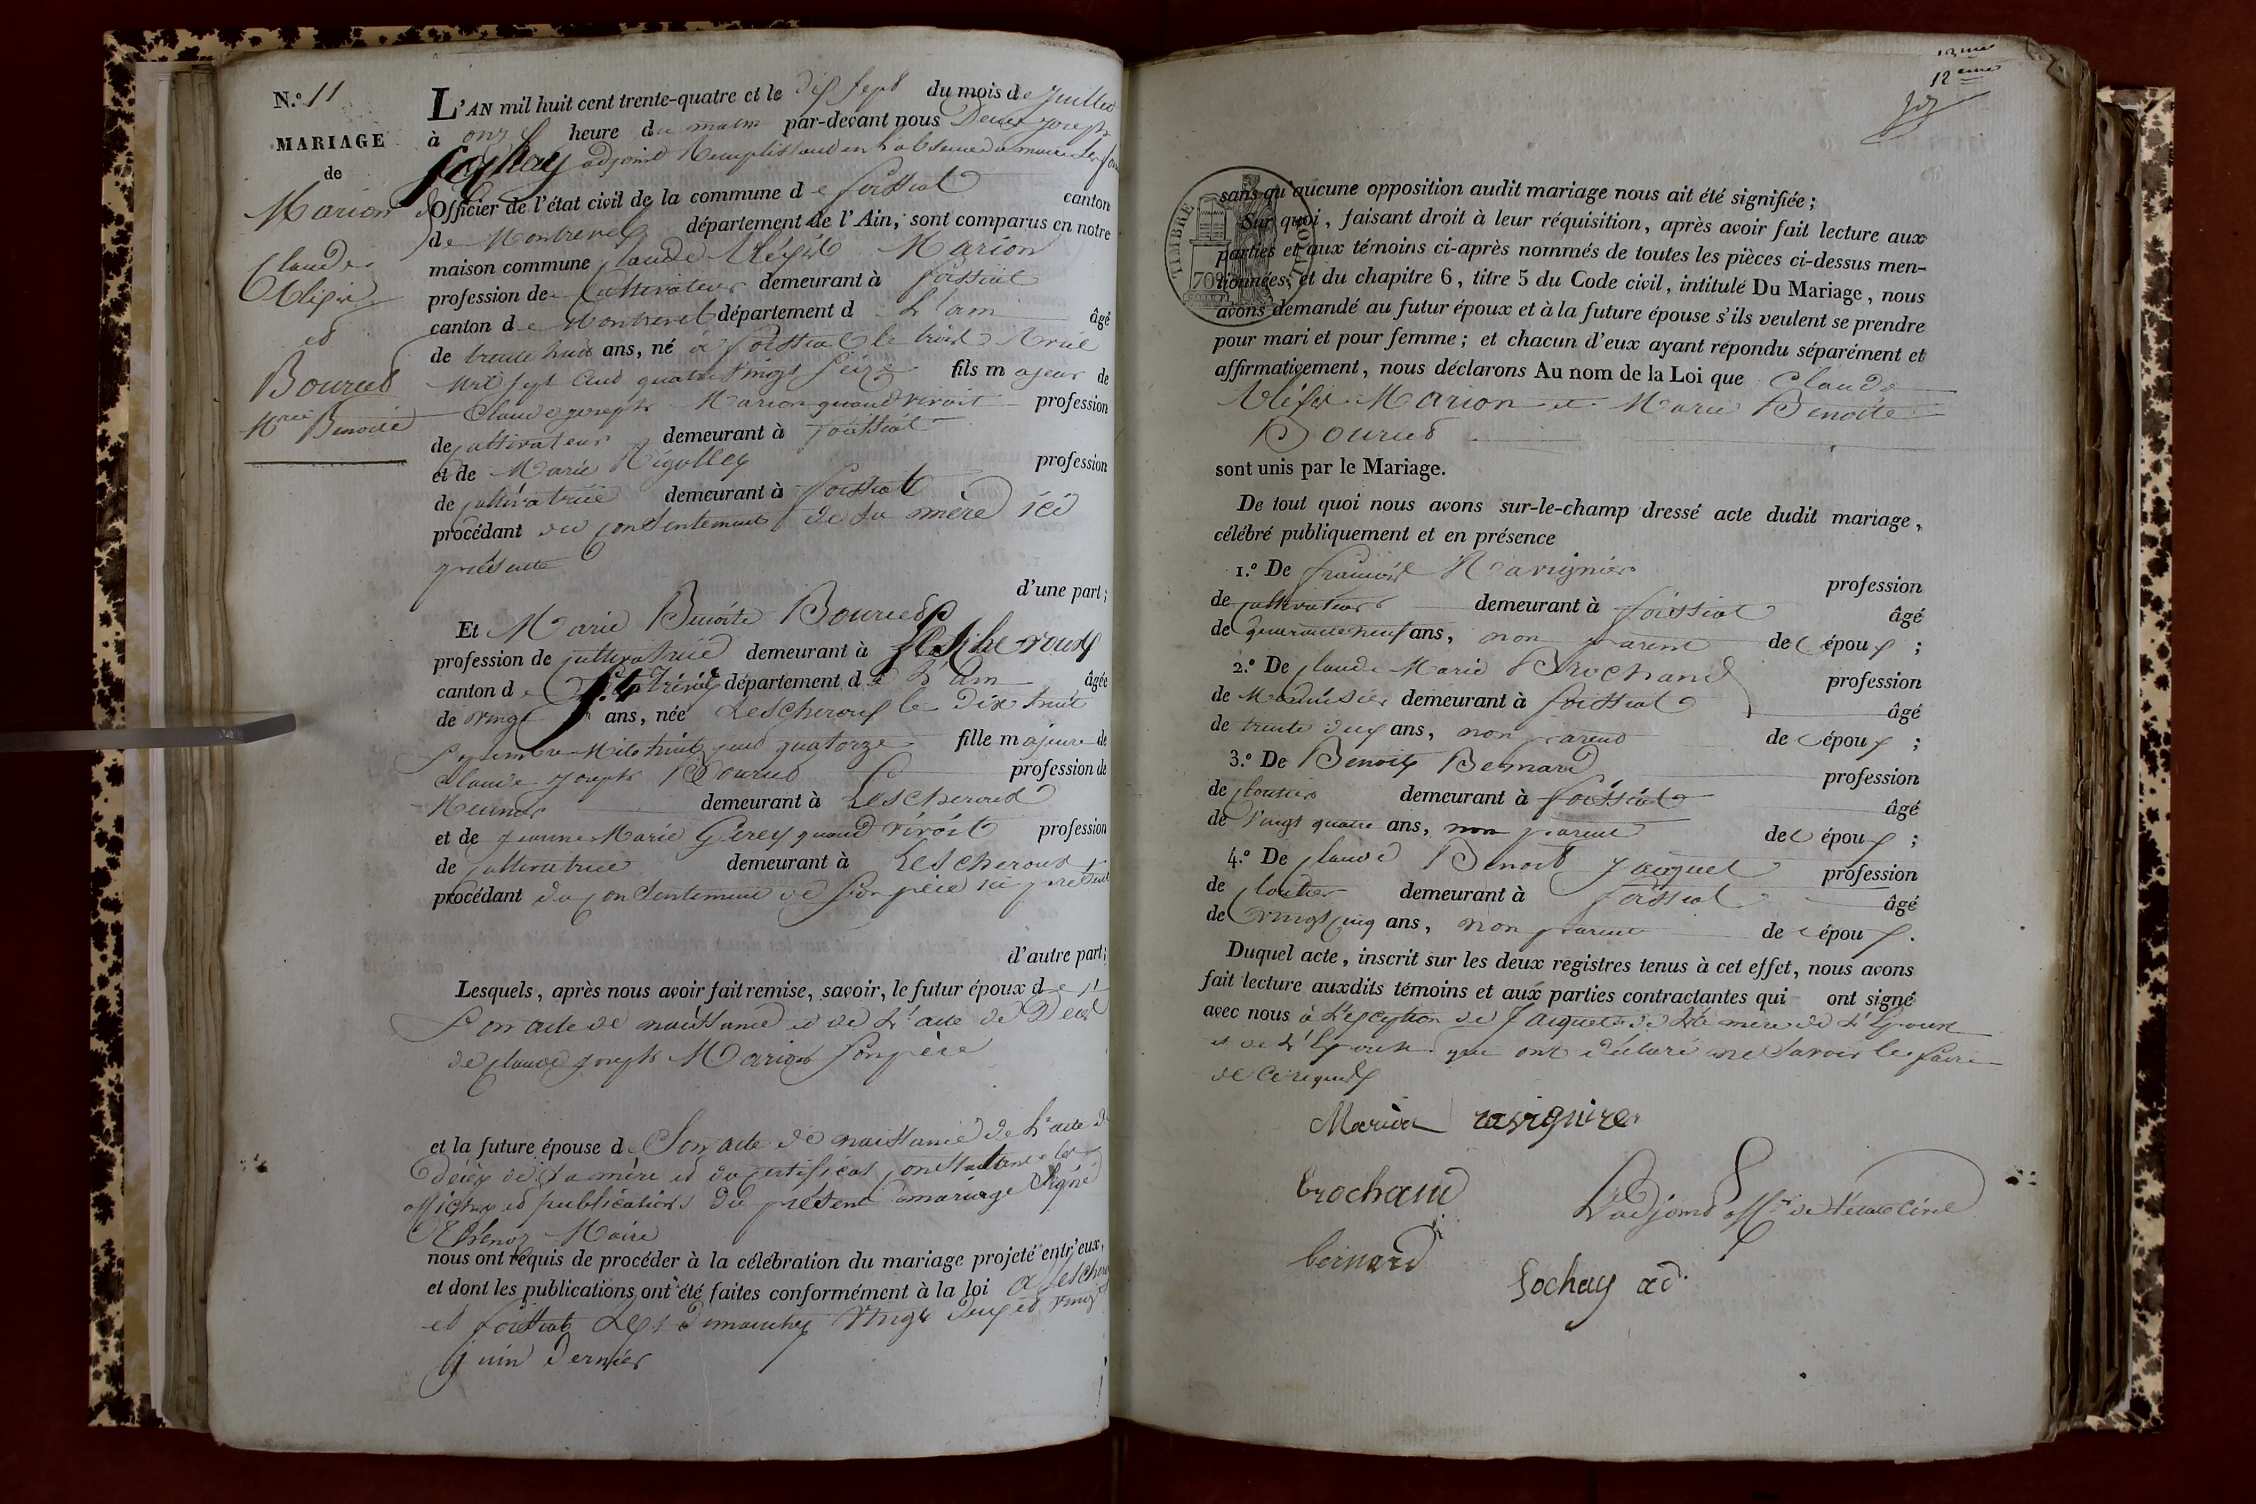 N.º 11
MARIAGE
de
Marion
Claude
et
Bourcet
M.rie Benoite
L'AN mil huit cent trente-quatre et le dix sept du mois de juillet
à onze heure du matin par-devant nous Denis joseph
Sochay adjoint Remplissant en l'absence du maire les fon
Officier de l'état civil de la commune de foissiat canton
de Montrevel département de l'Ain, sont comparus en notre
maison commune Claude Marion
profession de Cultivateur demeurant à foissiat
canton de Montrevel département d L'ain âgé
de trente huit ans, né à foissiat le trois Avril
Mil sept Cent quatre vingt seize fils majeur de
Claude joseph Marion quand vivoit profession
de cultivateur demeurant à foissiat
et de Marie Rigolley profession
de cultivatrice demeurant à foissiat
procédant du consentement de sa mère ici
présente
d'une part;
Et Marie Benoite Bourcet
profession de cultivatrice demeurant à Lescheroux
canton de département de L'ain âgée
de vingt ans, née Lescheroux le Dix huit
Septembre Mil huit cent quatorze fille majeure de
Claude Joseph Bourcet profession de
Meunier demeurant à Lescheroux
et de jeanne Marie Gerey quand vivoit profession
de cultivatrice demeurant à Lescheroux
procédant du consentement de son père ici présent
d'autre part;
Lesquels, après nous avoir fait remise, savoir, le futur époux de
son acte de naissance et de L'acte de Decès
de Claude joseph Marion son père
et la future épouse de Son acte de naissance de L'acte de
Décès de sa mère et du certificat constatant les
affiches et publications du présent mariage Signé
Maire
nous ont requis de procéder à la célébration du mariage projeté entr'eux,
et dont les publications ont été faites conformément à la loi a Lescheroux
et foissiat Les dimanches vingt deux et vingt
juin dernier
12 eme
TIMBRE ROYAL
70 c
sans qu'aucune opposition audit mariage nous ait été signifiée;
Sur quoi, faisant droit à leur réquisition, après avoir fait lecture aux
parties et aux témoins ci-après nommés de toutes les pièces ci-dessus men-
tionnées, et du chapitre 6, titre 5 du Code civil, intitulé Du Mariage, nous
avons demandé au futur époux et à la future épouse s'ils veulent se prendre
pour mari et pour femme; et chacun d'eux ayant répondu séparément et
affirmativement, nous déclarons Au nom de la Loi que Claude
Marion et Marie Benoite
Bourcet
sont unis par le Mariage.
De tout quoi nous avons sur-le-champ dressé acte dudit mariage,
célébré publiquement et en présence
1.º De françois Ravignier profession
de cultivateur demeurant à foissiat âgé
de quarante neuf ans, non parent de l époux ;
2.º De Claude Marie Brochand profession
de Menuisier demeurant à foissiat âgé
de trente deux ans, non parent de l époux ;
3.º De Benoit Bernard profession
de cloutier demeurant à foissiat âgé
de vingt quatre ans, non parent de l époux ;
4.º De Claude Benoit Jacquet profession
de cloutier demeurant à foissiat âgé
de vingt cinq ans, non parent de l époux .
Duquel acte, inscrit sur les deux registres tenus à cet effet, nous avons
fait lecture auxdits témoins et aux parties contractantes qui ont signé
avec nous à L'exception de Jacquet de La mère de L'époux
et de L'épouse que ont déclaré ne savoir le faire
de ce requis
Marion ravignier
brochand
L'adjoint off.r de l'état civil
bernard
Sochay ad.